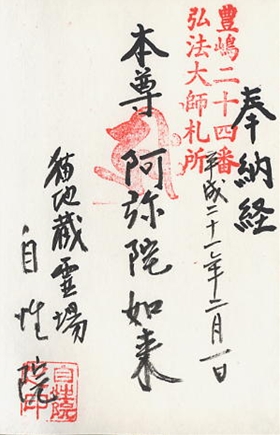 奉納経
豊嶋二十四番
弘法大師札所
平成二十一年二月一日
本尊 阿弥陀如来
猫地蔵霊場
自性院